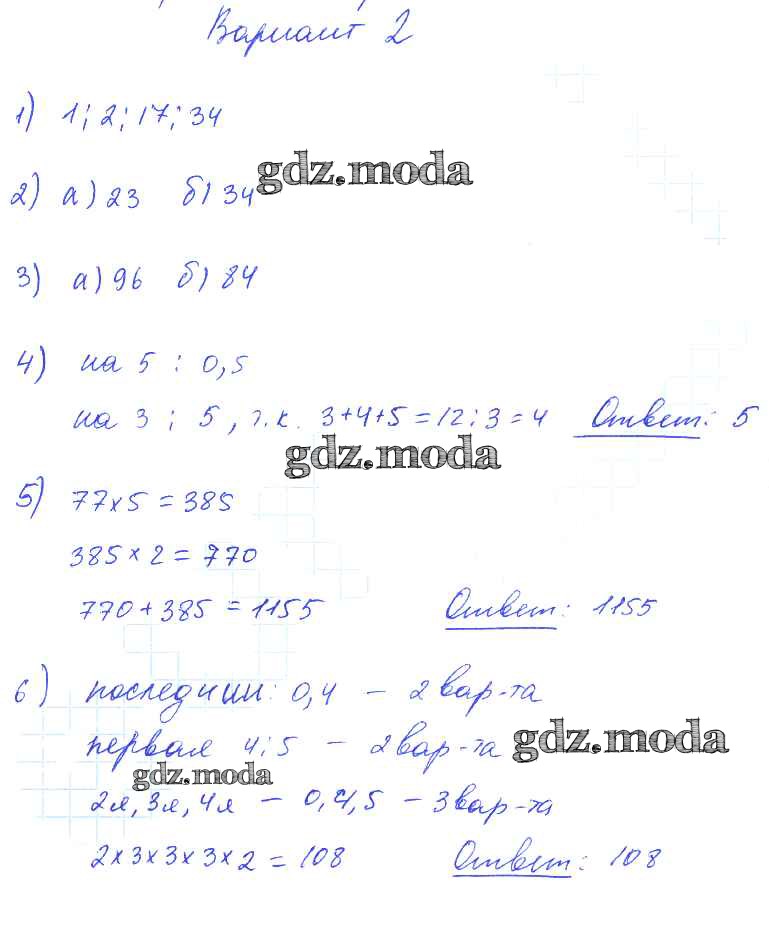 Вариант 2
1) 1; 2; 17; 34
gdz.moda
2) а) 23 б) 34
3) а) 96 б) 84
4) на 5 : 0,5
на 3 : 5, т.к. 3+4+5=12:3=4 Ответ: 5
gdz.moda
5) 77×5=385
385×2=770
770+385=1155 Ответ: 1155
6) последний: 0,4 – 2 вар-та
первая 4;5 – 2 вар-та gdz.moda
gdz.moda
2я, 3я, 4я – 0,4,5 – 3 вар-та
2×3×3×3×2=108 Ответ: 108